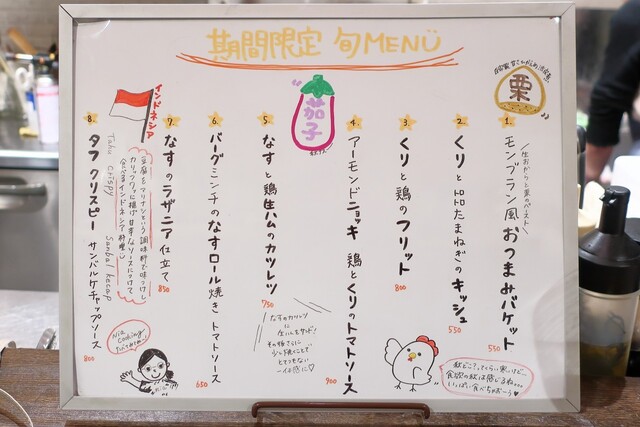 期間限定 旬MENÜ
栗
茄子
インドネシア
1. モンブラン風おつまみバケット 550
2. くりとトロトロたまねぎのキッシュ 550
3. くりと鶏のフリット 800
4. アーモンドニョッキ 鶏とくりのトマトソース 900
5. なすと鶏生ハムのカツレツ 750
なすのカツレツに
生ハムをサンド!
6. バーグミンチのなすロール焼き トマトソース 650
7. なすのラザニア仕立て 850
8. タフ クリスピー サンバルケチャップソース 800
Tahu crispy Sambal kecap
豆腐をマリナシという調味料で味つけし
カリッフワッに揚げ甘辛なソースにつけて
食べるインドネシア料理
Nia cooking
秋どこ?ってくらい寒いけど…
食欲の秋は感じるね…
いっぱい食べちゃおーう